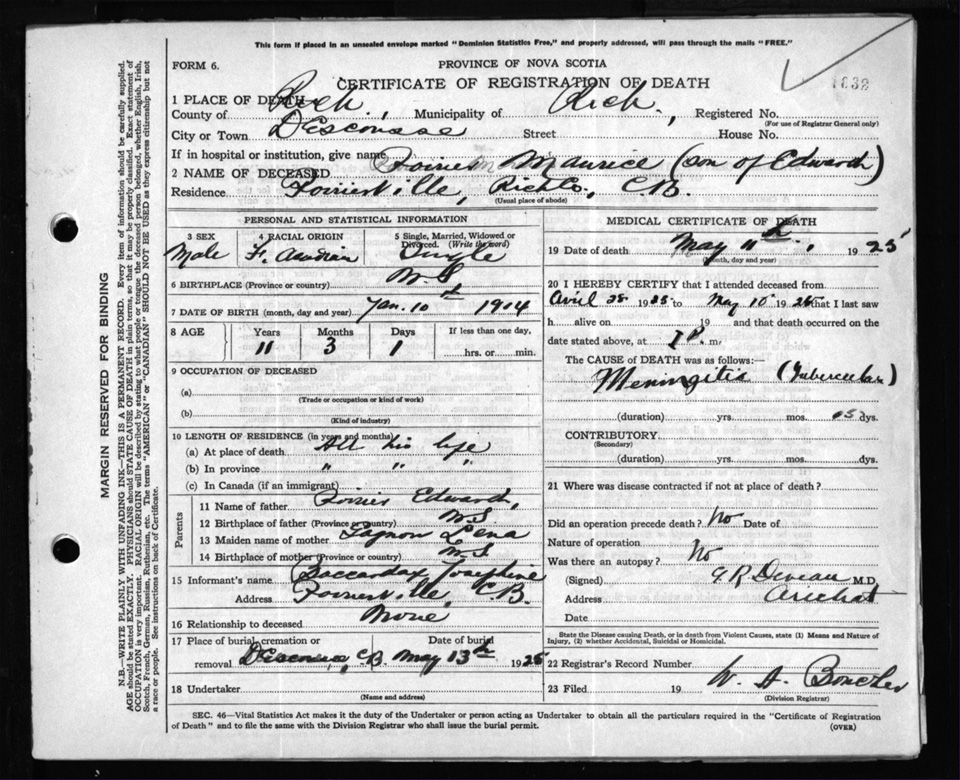 This form if placed in an unsealed envelope marked "Dominion Statistics Free," and properly addressed, will pass through the mails "FREE."
FORM 6.
PROVINCE OF NOVA SCOTIA
CERTIFICATE OF REGISTRATION OF DEATH
1632
1 PLACE OF DEATH
County of Rich. Municipality of Rich. Registered No.
(For use of Registrar General only)
City or Town D'Escousse Street House No.
If in hospital or institution, give name
2 NAME OF DECEASED Poirier Maurice (son of Edward)
Residence Poirierville, Rich Co., C.B.
(Usual place of abode)
PERSONAL AND STATISTICAL INFORMATION
3 SEX 4 RACIAL ORIGIN 5 Single, Married, Widowed or Divorced. (Write the word)
Male F. Acadian Single
6 BIRTHPLACE (Province or country) N.S.
7 DATE OF BIRTH (month, day and year) Jan. 10th 1914
8 AGE Years Months Days If less than one day,
11 3 1 hrs. or min.
9 OCCUPATION OF DECEASED
(a)
(Trade or occupation or kind of work)
(b)
(Kind of industry)
10 LENGTH OF RESIDENCE (in years and months)
(a) At place of death All his life
(b) In province " " "
(c) In Canada (if an immigrant)
Parents
11 Name of father Poirier Edward,
12 Birthplace of father (Province or country) N.S.
13 Maiden name of mother Lena
14 Birthplace of mother (Province or country) N.S
15 Informant's name Josephine
Address Poirierville, C.B.
16 Relationship to deceased None
17 Place of burial, cremation or removal Date of burial
D'Escousse, CB May 13th 1925
18 Undertaker
(Name and address)
MEDICAL CERTIFICATE OF DEATH
19 Date of death May 11th, 1925
(Month, day and year)
20 I HEREBY CERTIFY that I attended deceased from
April 28 1925 to May 10 1925 that I last saw
h alive on 19 and that death occurred on
date stated above, at 1 P. m.
The CAUSE OF DEATH was as follows:—
Meningitis (Tubercular)
(duration) yrs. mos. 15 dys.
CONTRIBUTORY
(Secondary)
(duration) yrs. mos. dys.
21 Where was disease contracted if not at place of death?
Did an operation precede death? No Date of
Nature of operation
Was there an autopsy? No
(Signed) G R Deveau M.D.
Address Arichat
Date
State the Disease causing Death, or in death from Violent Causes, state (1) Means and Nature of Injury, (2) whether Accidental, Suicidal or Homicidal.
22 Registrar's Record Number
23 Filed 19 W. A.
(Division Registrar)
SEC. 46—Vital Statistics Act makes it the duty of the Undertaker or person acting as Undertaker to obtain all the particulars required in the "Certificate of Registration
of Death" and to file the same with the Division Registrar who shall issue the burial permit. (OVER)
MARGIN RESERVED FOR BINDING
N.B.—WRITE PLAINLY WITH UNFADING INK—THIS IS A PERMANENT RECORD. Every item of information should be carefully supplied.
AGE should be stated EXACTLY. PHYSICIANS should STATE CAUSE OF DEATH in plain terms, so that it may be properly classified. Exact statement of
OCCUPATION is very important. RACIAL ORIGIN will be described by stating to what people or tongue the deceased person belonged, whether English, Irish,
Scotch, French, German, Russian, Ruthenian, etc. The terms "AMERICAN" or "CANADIAN" SHOULD NOT BE USED as they express citizenship but not
a race or people. See instructions on back of Certificate.